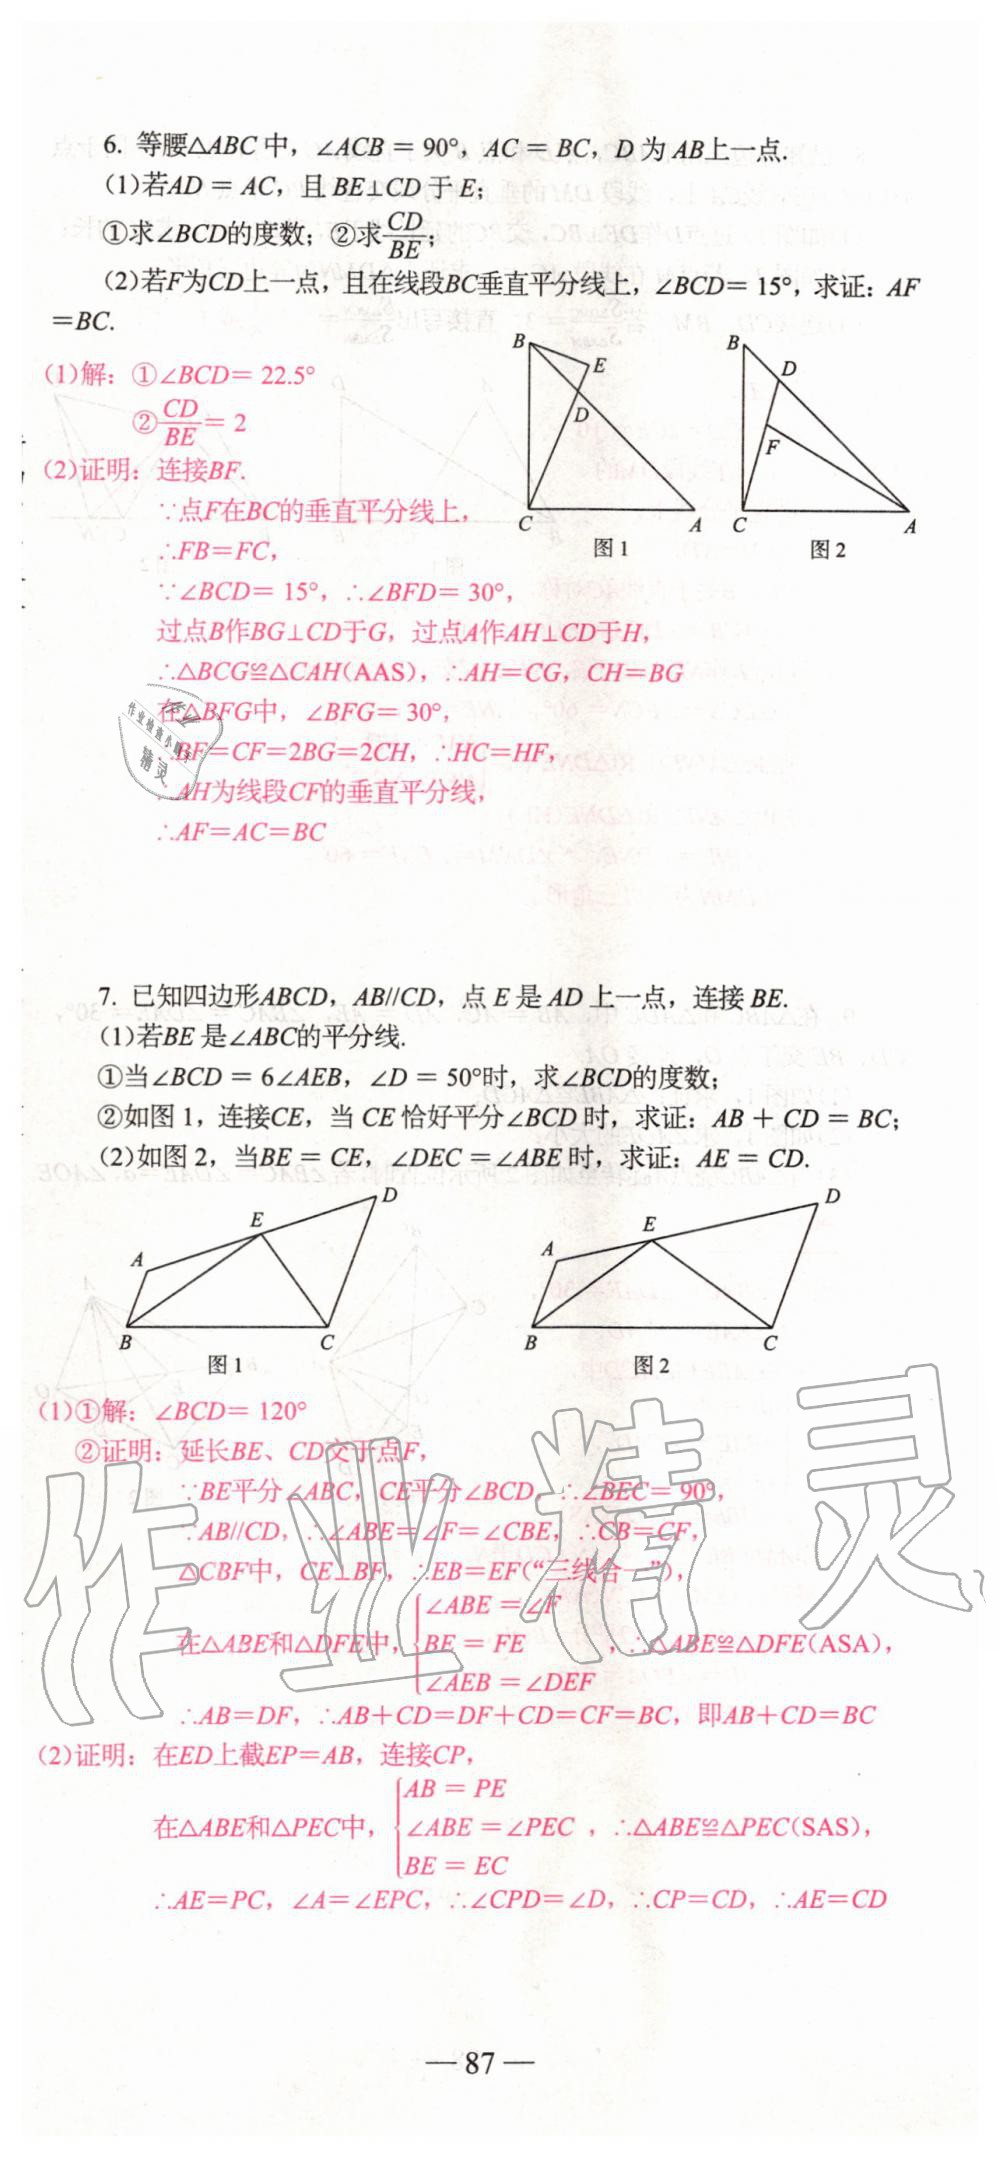 6. 等腰△ABC 中，∠ACB = 90°，AC = BC，D 为 AB上一点.
(1)若AD = AC，且 BE⊥CD 于 E；
①求∠BCD的度数；②求CD/BE；
(2)若F为CD上一点，且在线段BC垂直平分线上，∠BCD= 15°，求证：AF
=BC.
(1)解：①∠BCD= 22.5°
②CD/BE = 2
(2)证明：连接BF.
∵点F在BC的垂直平分线上，
∴FB=FC，
∵∠BCD= 15°，∴∠BFD= 30°，
过点B作BG⊥CD于G，过点A作AH⊥CD于H，
∴△BCG≌△CAH(AAS)，∴AH=CG，CH=BG
在△BFG中，∠BFG= 30°，
BF=CF=2BG=2CH，∴HC=HF，
AH为线段CF的垂直平分线，
∴AF=AC=BC
B
E
D
C
A
图 1
B
D
F
C
A
图 2
7. 已知四边形ABCD，AB//CD，点 E 是 AD 上一点，连接 BE.
(1)若BE 是∠ABC的平分线.
①当∠BCD = 6∠AEB，∠D = 50°时，求∠BCD的度数；
②如图 1，连接CE，当 CE 恰好平分∠BCD 时，求证：AB + CD = BC；
(2)如图 2，当BE = CE，∠DEC = ∠ABE 时，求证：AE = CD.
D
E
A
B
C
图 1
D
E
A
B
C
图 2
(1)①解：∠BCD= 120°
②证明：延长BE、CD交于点F，
∵BE平分∠ABC，CE平分∠BCD，∴∠BEC= 90°，
∵AB//CD，∴∠ABE=∠F=∠CBE，∴CB=CF，
△CBF中，CE⊥BF，∴EB=EF(“三线合一”)，
∠ABE =∠F
在△ABE和△DFE中，BE = FE，∴△ABE≌△DFE(ASA)，
∠AEB =∠DEF
∴AB=DF，∴AB+CD=DF+CD=CF=BC，即AB+CD=BC
(2)证明：在ED上截EP=AB，连接CP，
AB = PE
在△ABE和△PEC中，∠ABE =∠PEC，∴△ABE≌△PEC(SAS)，
BE = EC
∴AE=PC，∠A=∠EPC，∴∠CPD=∠D，∴CP=CD，∴AE=CD
作业精灵
作业
作业检查小助手
精灵
— 87 —